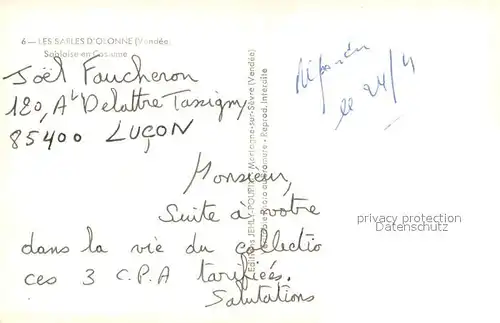 6 — LES SABLES D'OLONNE (Vendée)
Sablaise en Costume
Joël Faucheron
120, Av Delattre Tassigny
85400 LUÇON
Répondu
le 24/4
Monsieur,
Suite à votre
dans la vie du collectio
ces 3 C.P.A tarifiées.
Salutations
Editions JEHLY-POUPIN, Mortagne-sur-Sèvre (Vendée)
Reprod. Interdite
privacy protection
Datenschutz